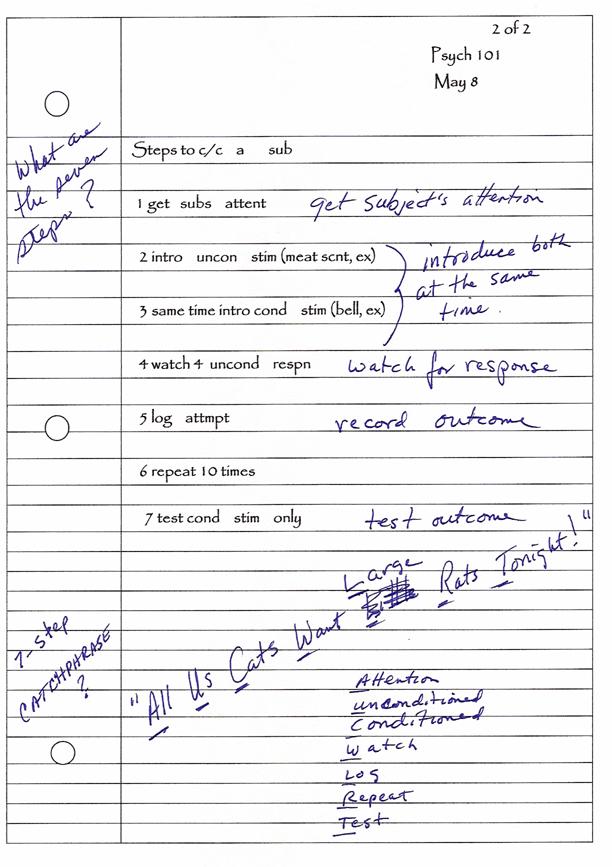 2 of 2
Psych 101
May 8
What are
the seven
steps?
Steps to c/c a sub
1 get subs attent get subject's attention
2 intro uncon stim (meat scnt, ex)
3 same time intro cond stim (bell, ex)
introduce both
at the same
time.
4 watch 4 uncond respn watch for response
5 log attmpt record outcome
6 repeat 10 times
7 test cond stim only test outcome
7-step
CATCHPHRASE
?
"All Us Cats Want Large Rats Tonight!"
Attention
unconditioned
Conditioned
Watch
Log
Repeat
Test